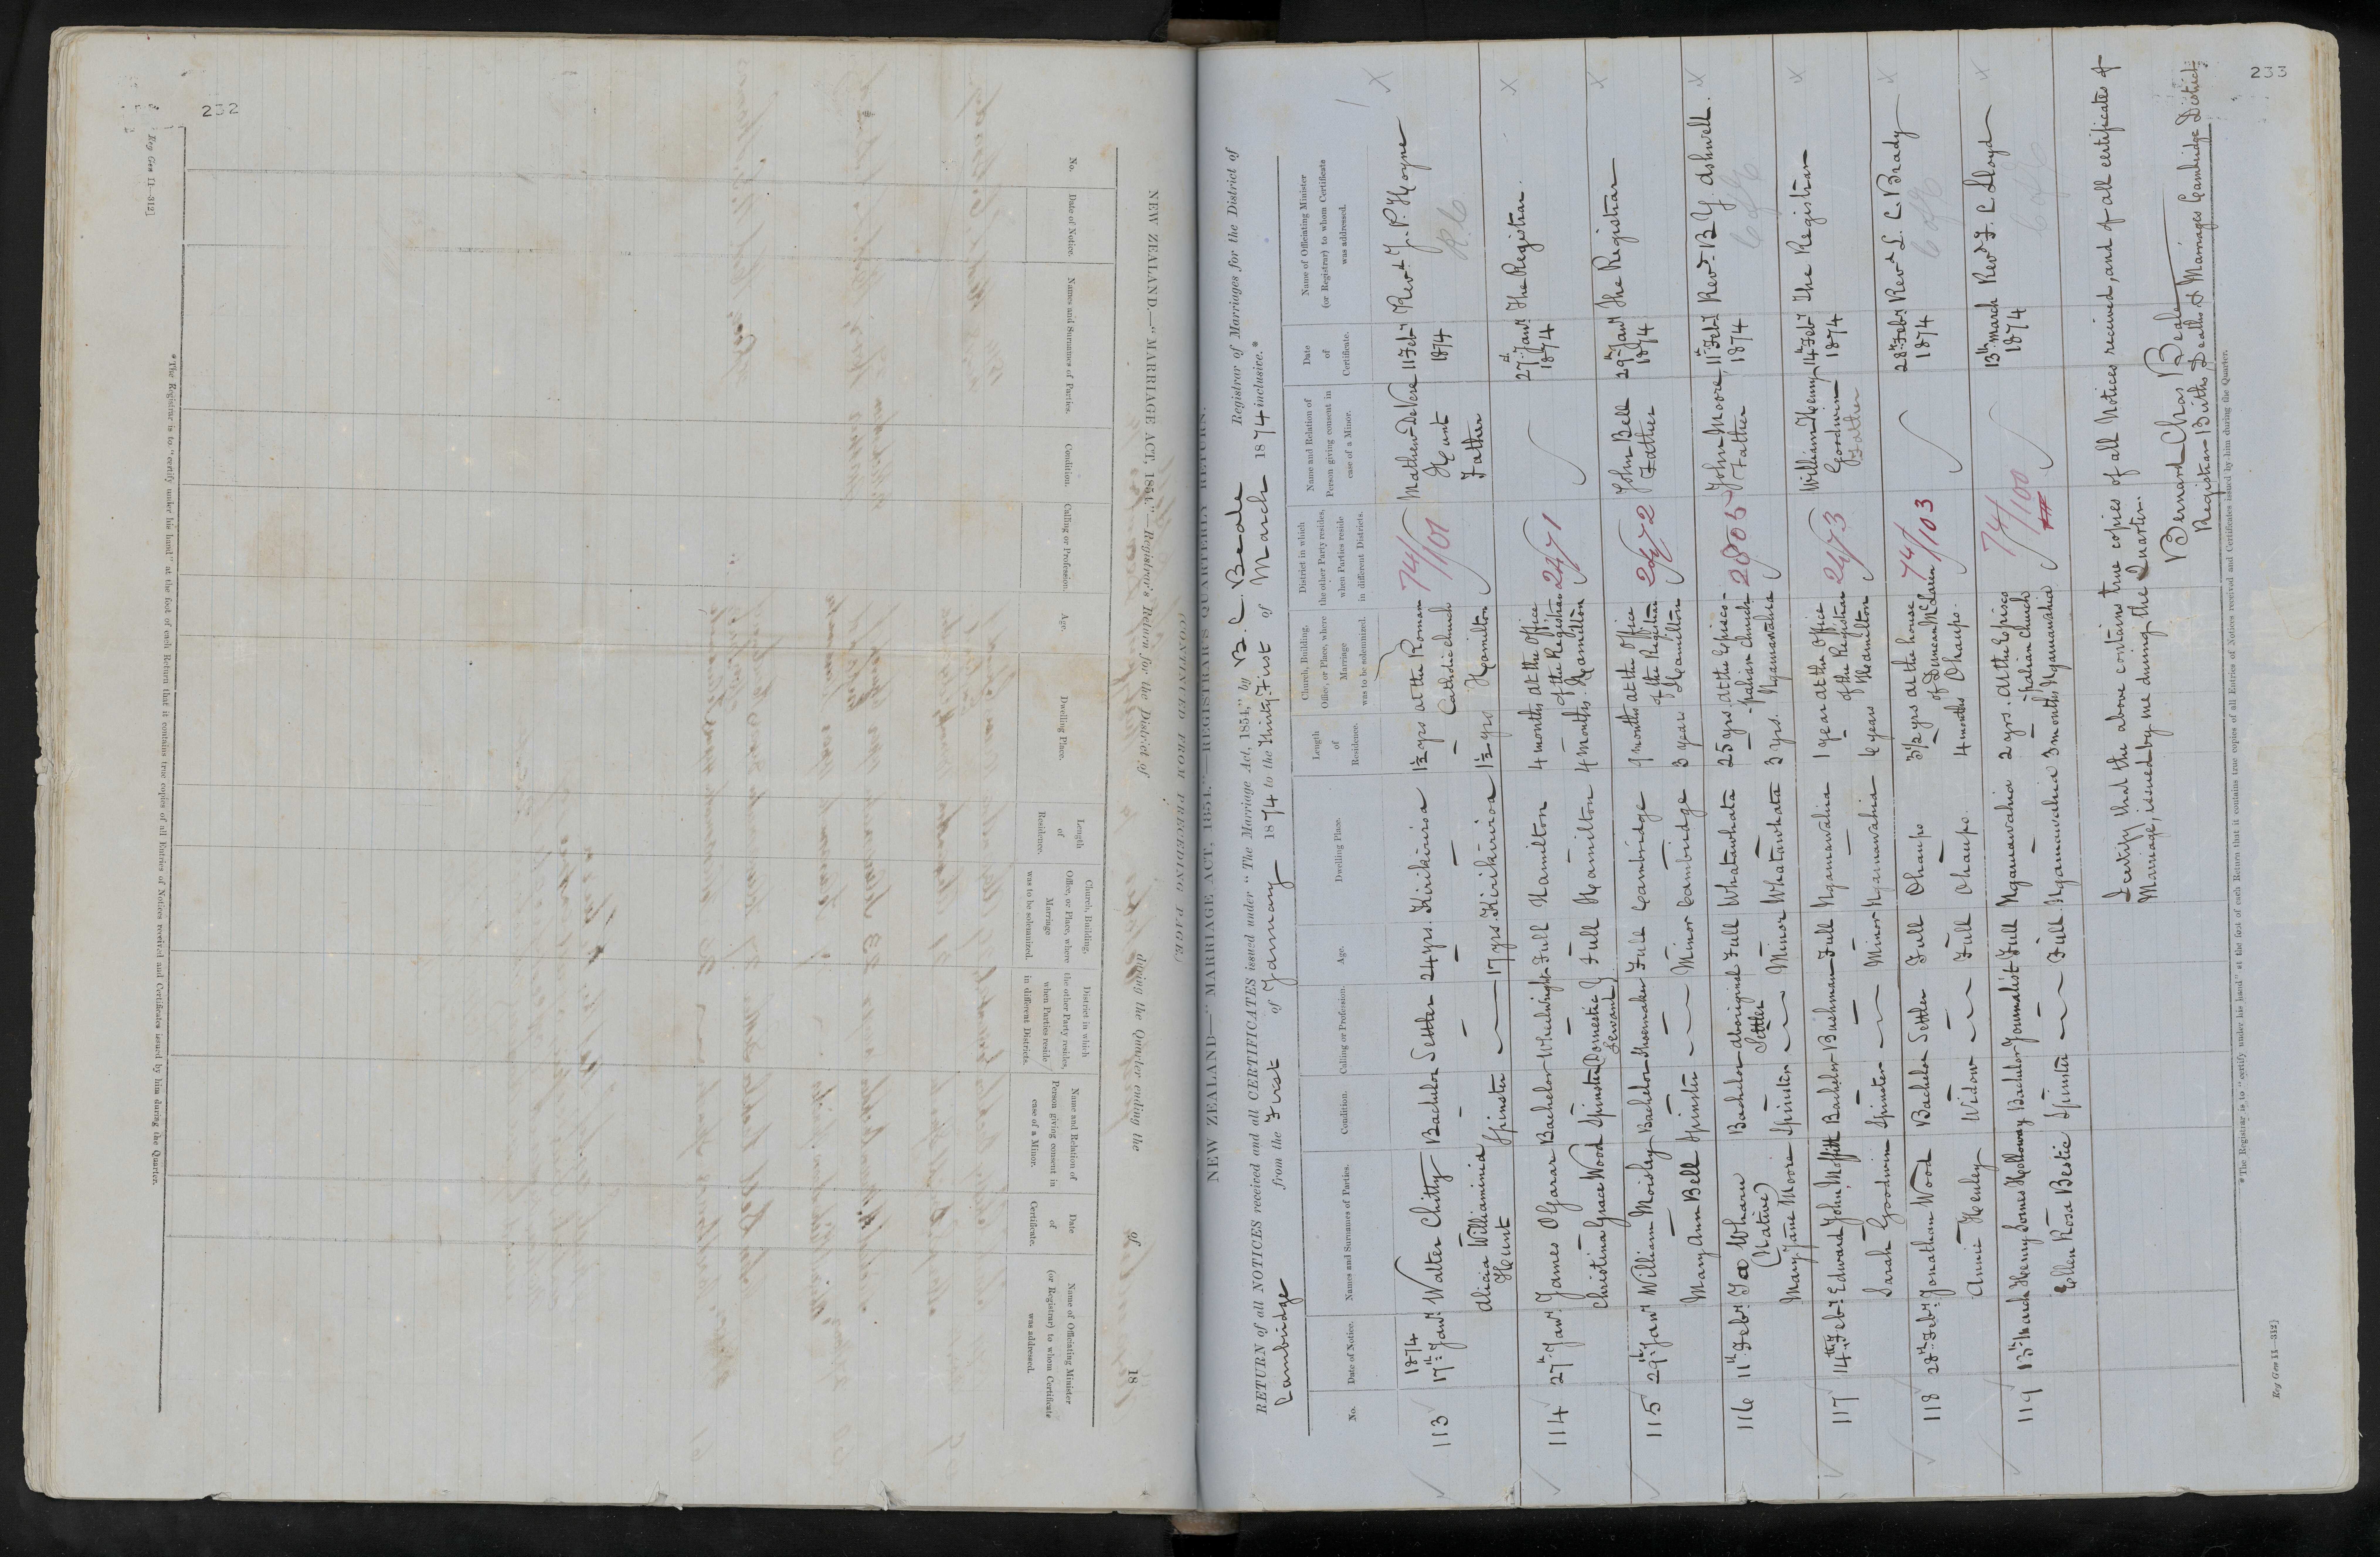 232
[Reg Gen 11—312]
NEW ZEALAND.—"MARRIAGE ACT, 1854."—Registrar's Return for the District of during the Quarter ending the of 18
No.
Date of Notice.
Names and Surnames of Parties.
Condition.
Calling or Profession.
Age.
Dwelling Place.
Length of Residence.
Church, Building, Office, or Place, where Marriage was to be solemnized.
District in which the other Party resides, when Parties reside in different Districts.
Name and Relation of Person giving consent in case of a Minor.
Date of Certificate.
Name of Officiating Minister (or Registrar) to whom Certificate was addressed.
*The Registrar is to "certify under his hand" at the foot of each Return that it contains true copies of all Entries of Notices received and Certificates issued by him during the Quarter.
CONTINUED FROM PRECEDING PAGE
NEW ZEALAND—"MARRIAGE ACT, 1854."—REGISTRAR'S QUARTERLY RETURN.
RETURN of all NOTICES received and all CERTIFICATES issued under "The Marriage Act, 1854," by B. C. Beale Registrar of Marriages for the District of
Cambridge from the First of January 1874 to the Thirty First of March 1874 inclusive.*
No.
Date of Notice.
Names and Surnames of Parties.
Condition.
Calling or Profession.
Age.
Dwelling Place.
Length of Residence.
Church, Building, Office, or Place, where Marriage was to be solemnized.
District in which the other Party resides, when Parties reside in different Districts.
Name and Relation of Person giving consent in case of a Minor.
Date of Certificate.
Name of Officiating Minister (or Registrar) to whom Certificate was addressed.
113 1874 17th Jany Walter Chitty Bachelor Settler 24 yrs. Kirikiriroa 1½ yrs at the Roman Catholic Church Hamilton 74/101 Mathew DeVere Hunt Father 11 Feby 1874 Revd J. P. Hoyne R.C
Alicia Williaminia Hunt Spinster 17 yrs. Kirikiriroa 1½ yrs
114 27th Jany James OGarar Bachelor Wheelwright Full Hamilton 4 months at the Office of the Registrar Hamilton 2471 27th Jany 1874 The Registrar.
Christina Grace Wood Spinster Domestic Servant Full Hamilton 4 months.
115 29th Jany William Moisley Bachelor Shoemaker Full Cambridge 9 months at the Office of the Registrar Hamilton 2472 John Bell Father 29th Jany 1874 The Registrar
Mary Ann Bell Spinster Minor Cambridge 3 years
116 11th Feby Ta Wharu (Native) Bachelor aboriginal Settler Full Whatawhata 25 yrs. at the Episcopalian Church Ngaruawahia 2805 John Moore Father 11th Feby 1874 Revd B Y Ashwell. C of E
Mary Jane Moore Spinster Minor Whatawhata 3 yrs.
117 14th Feby Edward John Moffitt Bachelor Bushman Full Ngaruawahia 1 year at the Office of the Registrar Hamilton 2473 William Henry Goodwin Father 14th Feby 1874 The Registrar
Sarah Goodwin Spinster Minor Ngaruawahia 6 years
118 28th Feby Jonathan Wood Bachelor Settler Full Ohaupo 3½ yrs at the house of Duncan McLaren Ohaupo. 74/103 28th Feby 1874 Revd L. C. Brady C of E
Annie Henley Widow Full Ohaupo. 4 months
119 13th March Henry Somes Holloway Bachelor Journalist Full Ngaruawahia 2 yrs. at the Episcopalian Church Ngaruawahia 74/100 13th March 1874 Revd F. C Lloyd C of E
Ellen Rosa Bestic Spinster Full Ngaruawahia 3 months
I certify that the above contains true copies of all Notices received, and of all certificates of
Marriage, issued by me during the Quarter.
Bernard Chas Beale
Registrar Births Deaths & Marriages Cambridge District
*The Registrar is to "certify under his hand" at the foot of each Return that it contains true copies of all Entries of Notices received and Certificates issued by him during the Quarter.
Reg Gen 11—312]
233